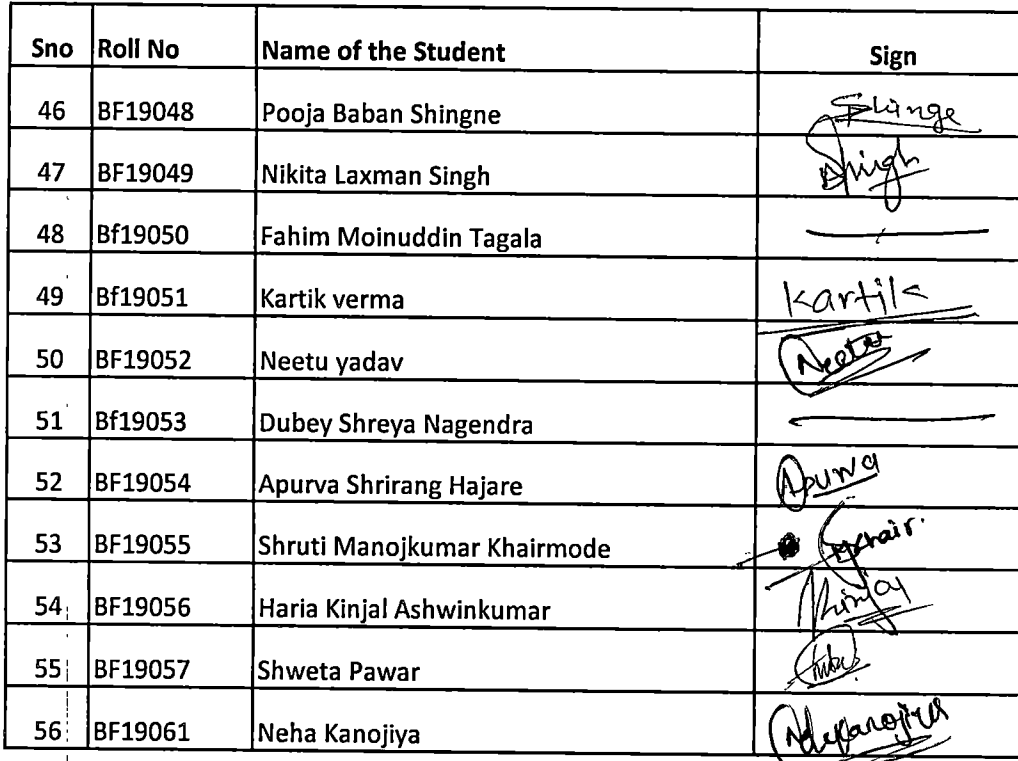 Sno Roll No Name of the Student Sign
46 BF19048 Pooja Baban Shingne Shinge
47 BF19049 Nikita Laxman Singh Singh
48 Bf19050 Fahim Moinuddin Tagala
49 Bf19051 Kartik verma Kartik
50 BF19052 Neetu yadav Neetu
51 Bf19053 Dubey Shreya Nagendra
52 BF19054 Apurva Shrirang Hajare Apurva
53 BF19055 Shruti Manojkumar Khairmode
54 BF19056 Haria Kinjal Ashwinkumar
55 BF19057 Shweta Pawar
56 BF19061 Neha Kanojiya